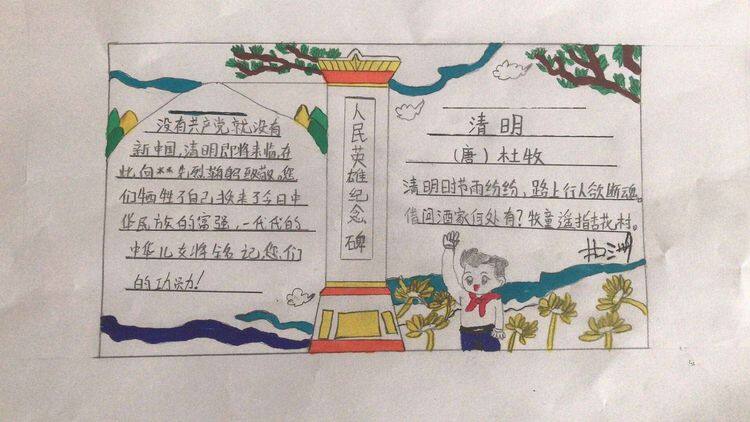 没有共产党就没有
新中国,清明即将来临,在
此,向**先烈鞠躬致敬。您
们牺牲了自己,换来了今日中
华民族的富强,一代代的
中华儿女将铭记您们
的功劳!
人民英雄纪念碑
清明
(唐)杜牧
清明时节雨纷纷,路上行人欲断魂。
借问酒家何处有?牧童遥指杏花村。